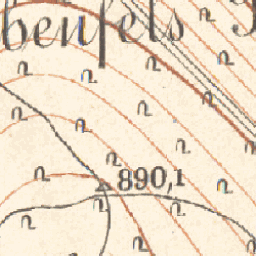 benfels
890,1